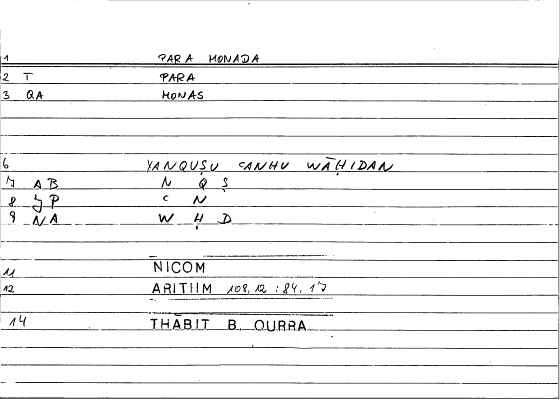 1 PARA MONADA
2 T PARA
3 QA MONAS
6 YANQUṢU ʿANHU WĀḤIDAN
7 AB N Q Ṣ
8 JP ʿ N
9 NA W Ḥ D
11 NICOM
12 ARITHM 108,12 : 84,17
14 THĀBIT B. QURRA